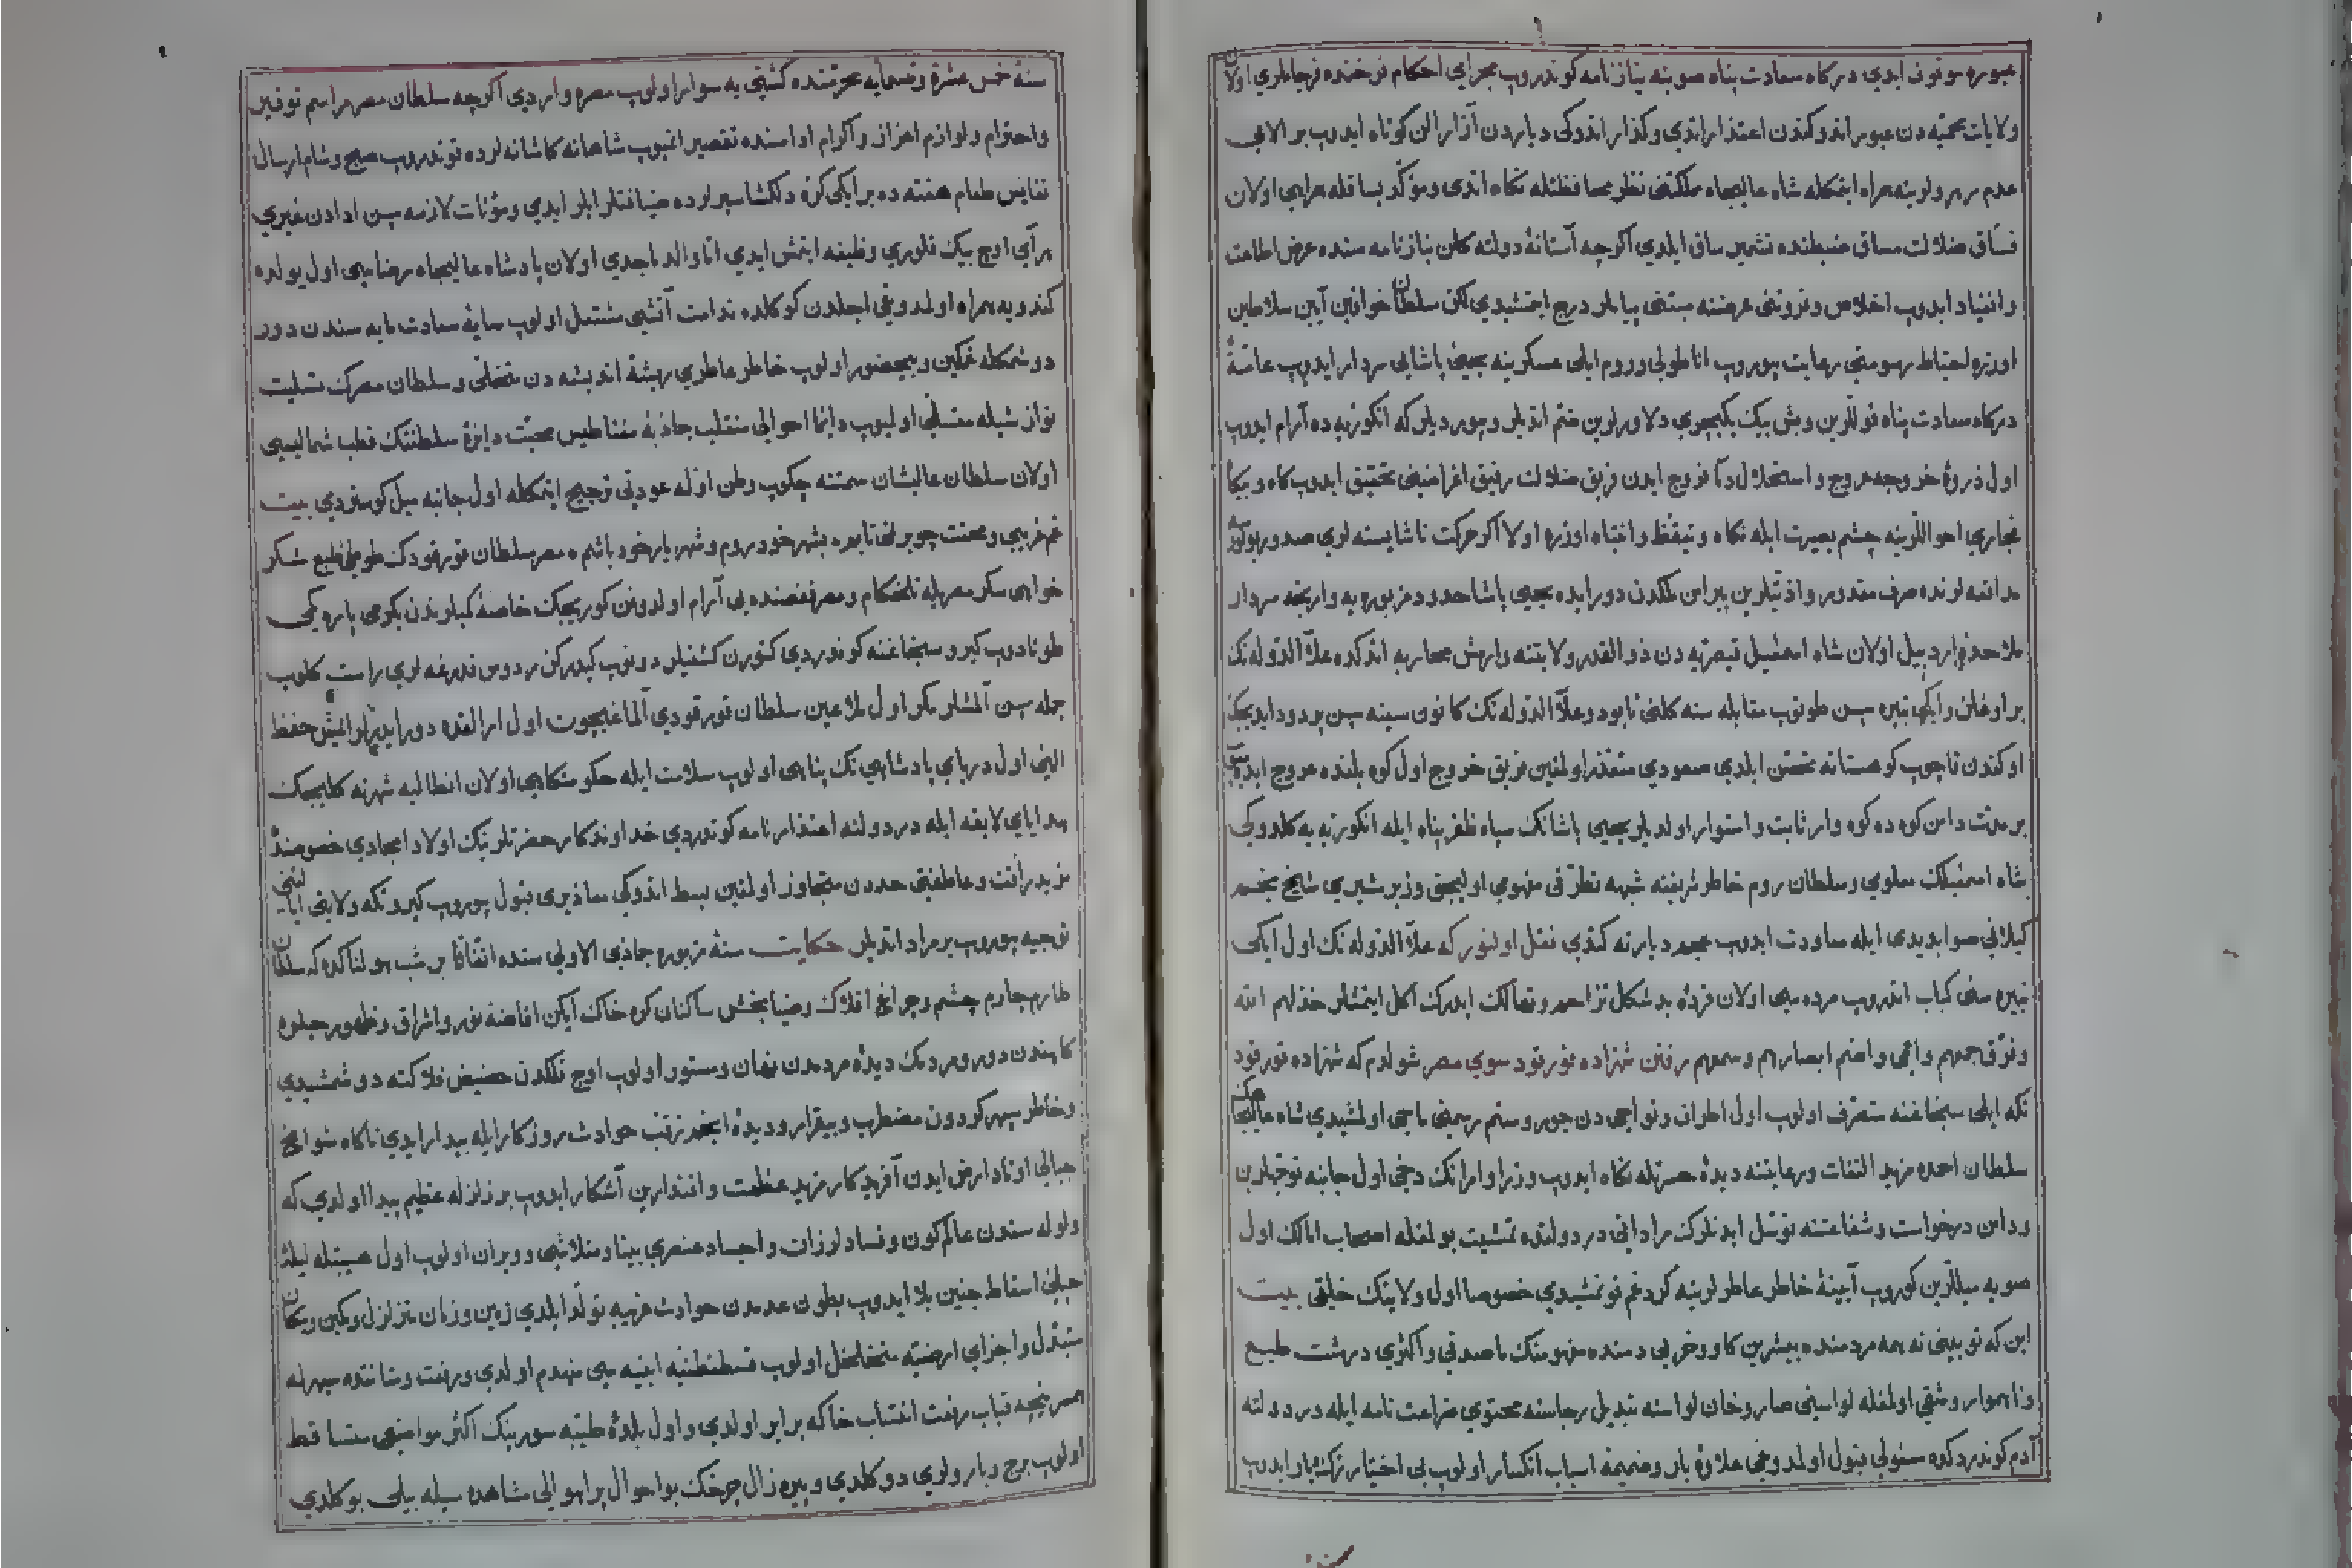 عبوره موقوف ايدي درکاه سعادت پناه صوبنه نيازنامه کوندروب مجراي احکام فرخنده فرجاملري اولان
ولايات محميه دن عبور اندوکندن اعتذار اندي وکذار اندوکی دياردن آزار الن کوتاه ايدوب بر الاي
عدم مرورلرينه همراه ايتمکله شاه عاليجاه مملکتنی نظر محافظتله نکاه اندی ومؤکد يساقله همراهی اولان
فساق ضلالت مساق ضبطنده تشمير ساق ايلدي اکرچه آستانۀ دولته کلن نيازنامه سنده عرض اطاعت
وانقياد ايدوب اخلاص وفروتنی عرضنه مبتنی پياملر درج ايتمشيدي لکن سلطان خواقين آيين سلاطين
اوزره احتياط رسومنی رعايت بيوروب اناطولی وروم ايلی عسکرينه يحيی پاشايی سردار ايدوب عامۀ
درکاه سعادت پناه قوللرين وبش بيک يکيچری دلاورلرين ضم اتديلر وبيورديلر که انکوريه ده آرام ايدوب
اول ذروۀ خروجه عروج واستحلال دما فروج ايدن فريق ضلالت رفيق اغراضنی تحقيق ايدوب کاه وبيکاه
مجاري احواللرينه چشم بصيرت ايله نکاه وتيقظ وانتباه اوزره اولا اکر حرکت ناشايسته لری صدور بولورسه
مدافعه لرنده صرف مقدور واذيتلرين پيرامن ملکدن دور ايده يحيی پاشا حدود مزبوره يه وارنجه سردار
ملاحدۀ اردبيل اولان شاه اسمعيل قيصريه دن ذو القدر ولايتنه وارمش محاربه اتدکده علاء الدوله نک
بر اوغلن وايکی نبيره سن طوتوب مقابله سنه کلنی نابود وعلاء الدوله نک کانون سينه سن پر دود ايديجک
اوکندن قاچوب کوهستانه تحصن ايلدی صعودي متعذر اولمغين فريق خروج اول کوه بلنده عروج
بر مدت دامن کوه ده کوه وار ثابت واستوار اولديلر يحيی پاشانک سپاه ظفر پناه ايله انکوريه يه کلدوکی
شاه اسمعيلک معلومی وسلطان روم خاطر شريفنه شبهه تطرقی مفهومی اوليجق وزير شيري شيخ نجم
کيلانی صوابديدی ايله معاودت ايدوب عجم ديارنه کتدي نقل اولنور که علاء الدوله نک اول ايکی
نبيره سنی کباب اتدروب مرده سی اولان فرقۀ بدشکل تزاحم وتهالک ايدرک اکل ايتمشلر خذلهم الله
وفرق جمعهم واعمی واصم ابصارهم وسمعهم رفتن شهزاده قورقود سوي مصر شولدم که شهزاده قورقود
تکه ايلی سنجاغنه متصرف اولوب اول اطراف ونواحی دن جور وستم رسمنی ماحی اولمشيدي شاه عاليجاهک
سلطان احمده مزيد التفات ورعايتنه ديدۀ حسرتله نکاه ايدوب وزرا وامرانک دخی اول جانبه توجهلرين
ودامن درخواست وشفاعتنه توسل ايدنلرک مراداتی در دولتده تمشيت بولمغله اصحاب امالک اول
صوبه ميللرين کوروب آيينۀ خاطر عاطرلرينه کرد غم قونمشيدي خصوصا اول ولاينک خلقی بيت
اين که تو بينی نه همه مردمنده بيشترين کاو وخر بی دمنده مفهومنک ماصدقی واکثري درشت طبع
وناهموار وشقی اولمغله لواسينی صاروخان لواسنه تبديل رجاسنه محتوي ضراعت نامه ايله در دولته
آدم کوندردکده مسئولی قبول اولمدوغی علاوۀ بار وضميمۀ اسباب انکسار اولوب بی اختيار ترک يار ايدوب
سنۀ خمس عشرة وتسعمايه محرمنده کشتی يه سوار اولوب مصره واردی اکرچه سلطان مصر مراسم توقير
واحترام ولوازم اعزاز واکرام اداسنده تقصير اتميوب شاهانه کاشانه لرده قوندروب صبح وشام ارسال
نفايس طعام هفته ده بر ايکی کره دلکشا سيرلرده ضيافتلر ايلر ايدي ومؤنات لازمه سن ادادن غيری
هر آي اوچ بيک فلوري وظيفه ايتمش ايدي اما والد ماجدي اولان پادشاه عاليجاه رضاسی اول يولده
کندويه همراه اولمدوغی اجلدن کوکلده ندامت آتشی مشتعل اولوب سايۀ سعادت مايه سندن دور
دوشمکله غمکين وبيحضور اولوب خاطر عاطري ريشۀ انديشه دن متخلی وسلطان مصرک تسليت
نوازشيله متسلی اولميوب دايما احوالی منقلب جاذبۀ مغناطيس محبت دايرۀ سلطنتک قطب شماليسی
اولان سلطان عاليشان سمتنه چکوب وطن اوله عودتی ترجيح ايتمکله اول جانبه ميل کوستردي بيت
غم غريبی ومحنت چو بر نمی تابم بشهر خود روم وشهريار خود باشم مصر سلطان قورقودک طوطی طبع شکر
خواهی سکر مصريله تلخکام ومصر قفصنده بی آرام اولدوغن کوريجک خاصۀ کميلرندن يکرمی پاره کمی
طونادوب کيرو سنجاغنه کوندردي کتورن کشتيلر دونوب کيدرکن ردوس قدرغه لري راست کلوب
جمله سن آلمشلر مکر اول ملاعين سلطان قورقودي آلمامغيچون اول ارالقده دور ايدرلر ايمش حفظ
الهی اول درياي پادشاهی نک پناهی اولوب سلامت ايله حکومتکاهی اولان انطاليه شهرنه کليجک
هداياي لايقه ايله در دولته اعتذارنامه کوندردي خداوندکار حضرتلرينک اولاد امجادي خصوصنده
مزيد رأفت وعاطفتی حددن متجاوز اولمغين بسط اتدوکی معاذيری قبول بيوروب کيرو تکه ولايتی ايالتنی
توجيه بيوروب بر مراد اتديلر حکايت سنۀ مزبوره جمادي الاولی سنده اتفاقا بر شب هولناکده که سلطان
طارم چارم چشم وچراغ افلاک وضيابخش ساکنان کوه خاک ايکن افاضۀ نور واشراق وظهور جلوه
کاهندن دور ومردمک ديدۀ مردمدن نهان ومستور اولوب اوج فلکدن حضيض فلاکته دوشمشيدي
وخاطر سپهر کردون مضطرب وبيقرار وديدۀ انجم ترقب حوادث روزکار ايله بيدار ايدي ناکاه شوامخ
جبالی اوتاد ارض ايدن آفريدکار مزيد عظمت واقتدارين آشکار ايدوب بر زلزله عظيم پيدا اولدي که
ولوله سندن عالم کون وفساد لرزان واجساد عنصري بيتاب ومتلاشی وويران اولوب اول هيبتله ليلۀ
حبلی اسقاط جنين بلا ايدوب بطون عدمدن حوادث غريبه تولد ايلدي زمين وزمان متزلزل ومکين ومکان
متبدل واجزاي ارضيه متخلخل اولوب قسطنطنيه ابنيه سی منهدم اولدي ورفعت ومتانتده سپهرله
همسر نيچه قباب رفعت انتساب خاکه برابر اولدي واول بلدۀ طيبه سورينک اکثر مواضعی متساقط
اولوب برج وبارولري دوکلدي وپيره زال چرخک بو احوال پر اهوالی مشاهده سيله بيلی بوکلدي